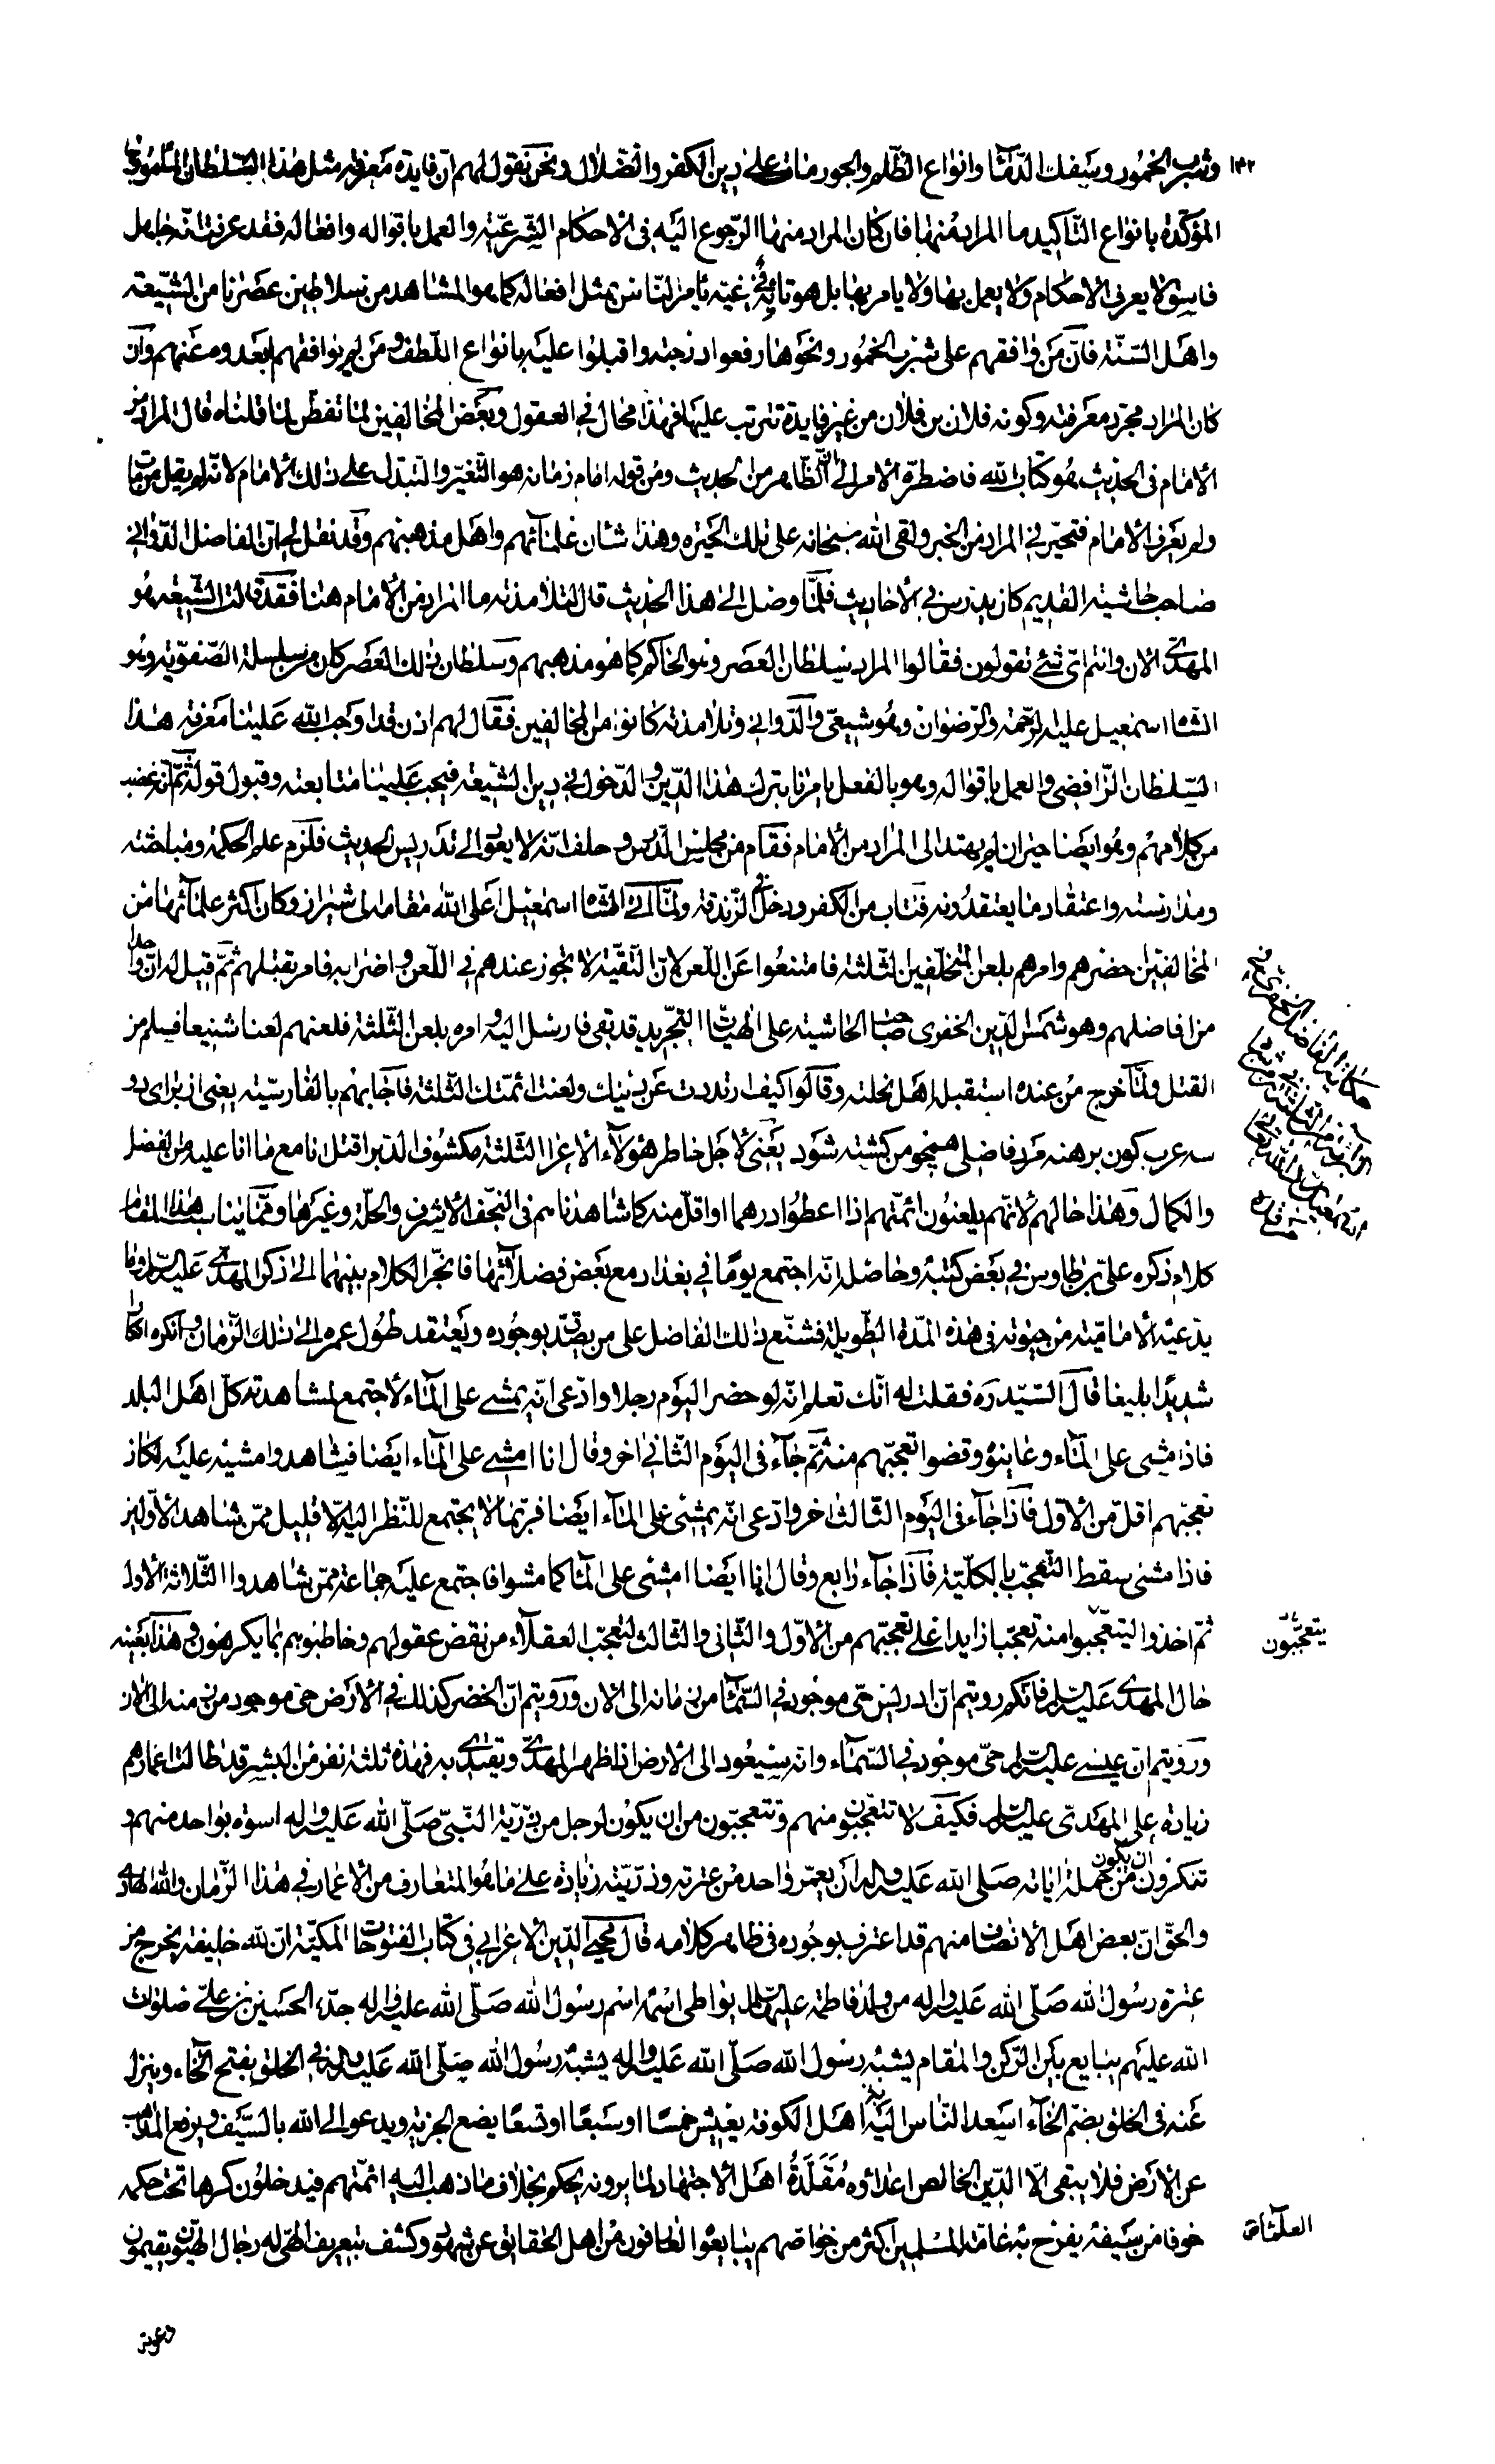 ١٤٢
وشرب الخمور وسفك الدّماء وانواع الظّلم والجور مات على دين الكفر والضّلال ونحن نقول لهم انّ فايدة معرفة مثل هذا السّلطان
المؤكّدة بانواع التّاكيد ما المراد منها فان كان المراد منها الرّجوع اليه فى الاحكام الشّرعيّة والعمل باقواله وافعاله فقد عرفت انّه جاهل
فاسق لا يعرف الاحكام ولا يعمل بها ولا يامر بها بل هو تائه فى غيّه يامر النّاس بمثل افعاله كما هو المشاهد من سلاطين عصرنا من الشّيعة
واهل السّنّة فانّ من وافقهم على شرب الخمور ونحوها رفعوا درجته واقبلوا عليه بانواع اللّطف ومن لم يوافقهم ابعدوه عنهم وان
كان المراد مجرّد معرفته وكونه فلان بن فلان من غير فايدة تترتب عليها فهذا محال فى العقول وبعض المخالفين لمّا تفطّن لما قلناه قال المراد من
الامام فى الحديث هو كتاب الله فاضطرّه الامر الى انّ الظّاهر من الحديث ومن قوله امام زمانه هو التّغيّر والتبدّل على ذلك الامام لانّه لم يقل من مات
ولم يعرف الامام فتحيّر فى المراد من الخبر ولقى الله سبحانه على تلك الحيرة وهذا شان علمآئهم واهل مذهبهم وقد نقل لى انّ الفاضل الدّوانى
صاحب حاشيته القديم كان يدرس فى الاحاديث فلمّا وصل الى هذا الحديث قال لتلامذته ما المراد من الامام هنا فقد قالت الشّيعة هو
المهدىّ الان وانتم اىّ شئ تقولون فقالوا المراد سلطان العصر وهو الحاكم كما هو مذهبهم وسلطان ذلك العصر كان من سلسلة الصّفويّة وهو
الشاه اسمعيل عليه الرّحمة والرّضوان وهو شيعىّ والدّوانى وتلامذته كانوا من المخالفين فقال لهم اذن قد اوجب الله علينا معرفة هذا
السّلطان الرّافضى والعمل باقواله وهو بالفعل يامرنا بترك هذا الدّين والدّخول فى دين الشّيعة فيجب علينا متابعته وقبول قوله ثمّ انّه غضب
من كلامهم وهو ايضا حيران لم يهتد الى المراد من الامام فقام من مجلس الدّرس وحلف انّه لا يعود الى تدريس الحديث فلزم علم الحكمة ومباحثته
ومدارسته واعتقاد ما يعتقدونه فتاب من الكفر ودخل فى الزّندقة ولمّا اتى الشاه اسمعيل اعلى الله مقامه الى شيراز وكان اكثر علمآئها من
المخالفين احضرهم وامرهم بلعن المتخلّفين الثلثة فامتنعوا عن اللّعن لانّ التّقيّة لا تجوز عندهم فى اللّعن واضرابه فامر بقتلهم ثمّ قيل له انّ واحدا
من افاضلهم وهو شمس الدّين الخفرى صاحب الحاشية على الهيّات التجّريد قد بقى فارسل اليه وامره بلعن الثّلثة فلعنهم لعنا شنيعا فسلم من
القتل ولمّا خرج من عنده استقبله اهل نحلته وقالوا كيف ارتددت عن دينك ولعنت ائمّتك الثّلثة فاجابهم بالفارسيّة يعنى از براى دو
سه عرب كون برهنه مرد فاضلى همچو من كشته شود يعنى لاجل خاطر هؤلاء الاعراب الثّلثة مكشوف الدبر اقتل انا مع ما انا عليه من الفضل
والكمال وهذا حالهم لانّهم يلعنون ائمّتهم اذا اعطوا درهما او اقلّ منه كما شاهدناهم فى النّجف الاشرف والحلّة وغيرها وممّا يناسب هذا المقام
كلام ذكره علىّ بن طاوس فى بعض كتبه وحاصله انّه اجتمع يومًا فى بغداد مع بعض فضلآئها فانجرّ الكلام بينهما الى ذكر المهدى عليه السّلم وما
يدعيه الاماميّة من حيوته فى هذه المدّة الطّويلة فشنّع ذلك الفاضل على من يصدّق بوجوده ويعتقد طول عمره الى ذلك الزّمان وانكره انكارا
شديدًا بليغا قال السّيّد ره فقلت له انّك تعلم انّه لو حضر اليوم رجلا وادّعى انّه يمشى على المآء لاجتمع لمشاهدته كلّ اهل البلد
فاذا مشى على المآء وعاينوه وقضوا تعجّبهم منه ثمّ جآء فى اليوم الثّانى اخر وقال انا امشى على المآء ايضا فشاهدوا مشيه عليه لكان
تعجّبهم اقلّ من الاوّل فاذا جآء فى اليوم الثّالث اخر وادّعى انّه يمشى على المآء ايضا فربّما لا يجتمع للنّظر اليه الّا قليل ممّن شاهد الاوّلين
فاذا مشى سقط التّعجّب بالكلّيّة فاذا جآء رابع وقال انا ايضا امشى على المآء كما مشوا فاجتمع عليه جماعة ممّن شاهدوا الثّلاثة الاول
ثمّ اخذوا ليتعجّبوا منه تعجّبا زايدا على تعجّبهم من الاوّل والثّانى والثالث لتعجّب العقلآء من نقض عقولهم وخاطبوهم بما يكرهون وهذا بعينه
يتعجّبون
حال المهدى عليه السّلم فانّكم رويتم انّ ادريس حىّ موجود فى السّمآء من زمانه الى الان ورويتم انّ الخضر كذلك فى الارض حىّ موجود من زمنه الى الان
ورويتم انّ عيسى عليه السّلم حىّ موجود فى السّمآء وانّه سيعود الى الارض اذا ظهر المهدىّ ويقتدى به فهذه ثلثة نفر من البشر قد طالت اعمارهم
زيادة على المهدىّ عليه السّلم فكيف لا تتعجّبون منهم وتتعجّبون من ان يكون لرجل من ذرّيّة النّبىّ صلّى الله عليه واله اسوة بواحد منهم و
تنكرون ان يكون من جملة اياته صلى الله عليه واله ان يعمّر واحد من عترته وذرّيّته زيادة على ما هو المتعارف من الاعمار فى هذا الزّمان والله الهادى
والحقّ انّ بعض اهل الانصاف منهم قد اعترف بوجوده فى ظاهر كلامه قال محيى الدّين الاعرابى فى كتاب الفتوحات المكيّة انّ لله خليفة يخرج من
عترة رسول الله صلّى الله عليه واله من ولد فاطمة عليها السّلم يواطى اسمه اسم رسول الله صلّى الله عليه واله جدّه الحسين بن علىّ صلوات
الله عليهم يبايع بين الرّكن والمقام يشبه رسول الله صلّى الله عليه واله يشبه رسول الله صلّى الله عليه واله فى الخلق بفتح الخآء وينزل
عنه فى الخلق بضمّ الخآء اسعد النّاس به اهل الكوفة يعيش خمسًا او سبعًا او تسعًا يضع الجزية ويدعو الى الله بالسّيف ويرفع المذاهب
عن الارض فلا يبقى الّا الدّين الخالص اعداؤه مقلّدة اهل الاجتهاد لما يرونه يحكم بخلاف ما ذهب اليه ائمّتهم فيدخلون كرها تحت حكمه
خوفا من سيفه يفرح به عامّة المسلمين اكثر من خواصّهم يبايعه العارفون من اهل الحقايق عن شهود وكشف بتعريف الهىّ له رجال الهيّون يقيمون
دعوته